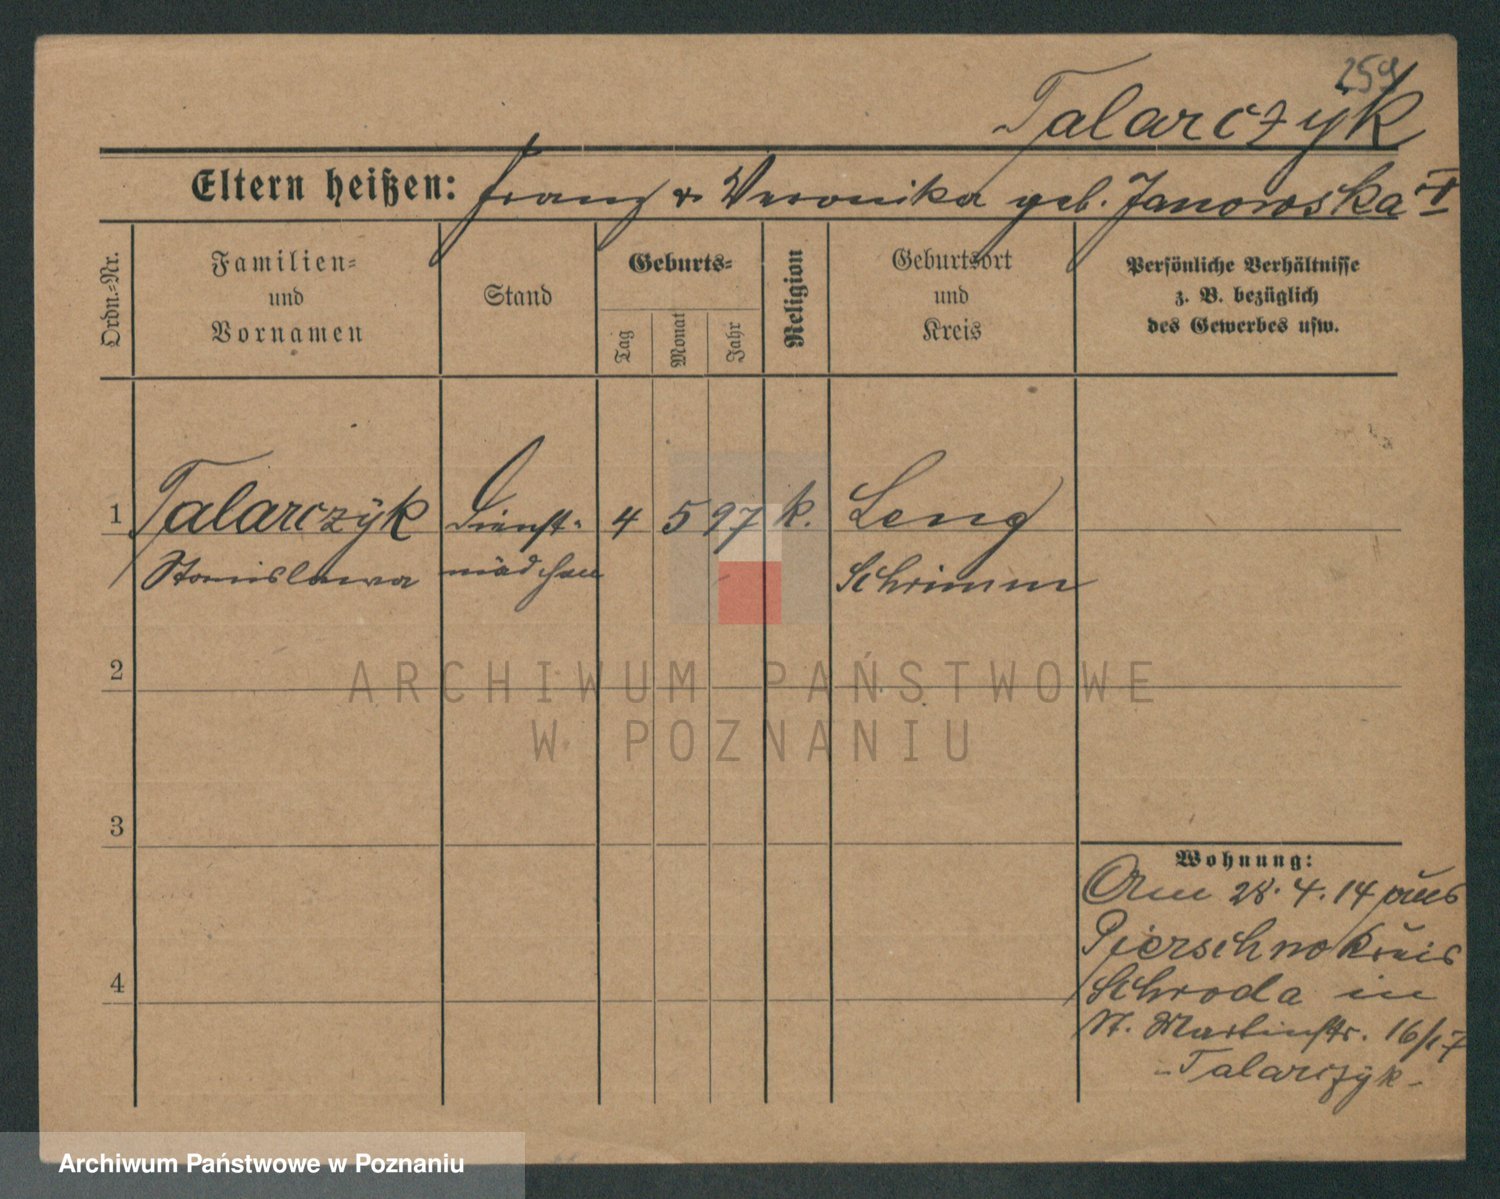 259
Talarczÿk
Eltern heißen: Franz & Veronika geb. Janowska
Ordn.=Nr.
Familien=
und
Vornamen
Stand
Geburts=
Tag
Monat
Jahr
Religion
Geburtsort
und
Kreis
Persönliche Verhältnisse
z. B. bezüglich
des Gewerbes usw.
1 Talarczÿk Dienst= 4 5 97 k. Leng
Stanislawa mädchen Schrimm
2
ARCHIWUM PAŃSTWOWE
W POZNANIU
3
Wohnung:
Am 28.4.14 aus
Pierschno Kreis
4
Schroda in
St. Martinstr. 16/17
- Talarczyk -
Archiwum Państwowe w Poznaniu